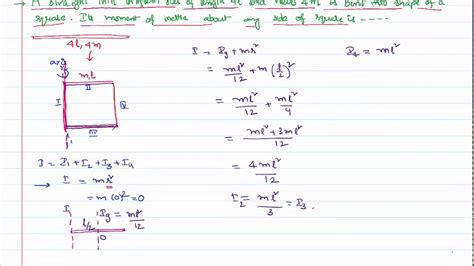 → A straight thin uniform rod of length 4l and mass 4m is bent into shape of a
square. Its moment of inertia about any side of square is ----
4l, 4m
m, l
I
II
IV
III
I = I₁ + I₂ + I₃ + I₄
→ I = mr²
= m(0)² = 0
I
Ig = ml²/12
l/2
0
I = Ig + mr²
= ml²/12 + m(l/2)²
= ml²/12 + ml²/4
= ml² + 3ml²/12
= 4ml²/12
I₂ = ml²/3 = I₃
I₄ = ml²